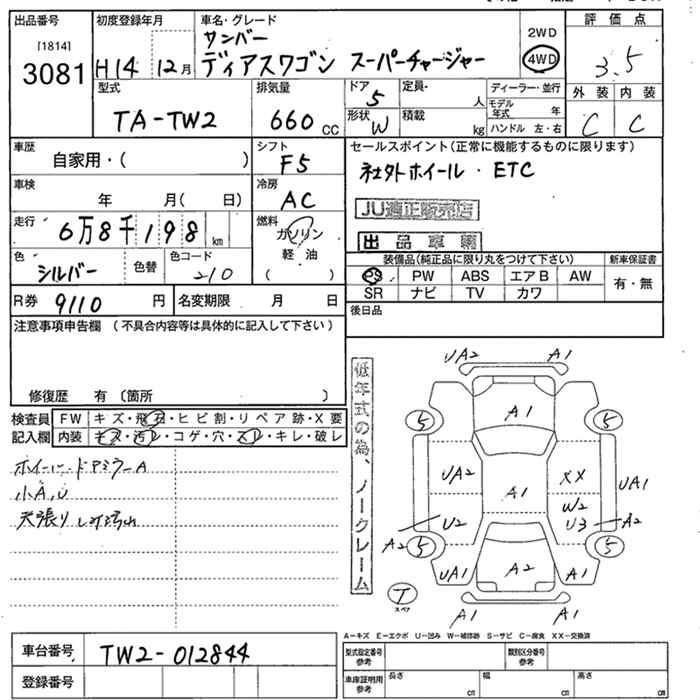 出品番号 初度登録年月 車名・グレード 評価点
[1814]
3081 H14 12月
サンバー
ディアスワゴン スーパーチャージャー
2WD
4WD
3.5
型式 排気量 ドア 定員 ディーラー・並行 外装 内装
TA-TW2 660cc 5 人 モデル年式 年
形状 W 積載 kg ハンドル 左・右 C C
車歴 シフト セールスポイント(正常に機能するものに限ります)
自家用・( ) F5 社外ホイール・ETC
車検 冷房
年 月( 日) AC JU適正販売店
走行 燃料 出品車輌
6万8千198km ガソリン
軽油
( )
装備品(純正品に限り丸をつけて下さい) 新車保証書
色 色替 色コード PS PW ABS エアB AW 有・無
シルバー 210 SR ナビ TV カワ
R券 9110円 名変期限 月 日 後日品
注意事項申告欄 (不具合内容等は具体的に記入して下さい)
修復歴 有(箇所 )
検査員 FW キズ・飛石・ヒビ割・リペア跡・X要
記入欄 内装 キズ・汚レ・コゲ・穴・スレ・キレ・破レ
ホイール・ドアミラーA
小A,U
天張り シミ汚れ
低年式の為、ノークレーム
UA2 A1
A1
5 5
UA2 A1 XX UA1
W2
U2 U3 A2
A2 5 5
UA1 A2 A1
T
スペア
A1 A1
A-キズ E-エクボ U-凹み W-補修跡 S-サビ C-腐食 XX-交換済
車台番号 TW2-012844 型式指定番号 参考 類別区分番号 参考
登録番号 車庫証明用 参考 長さ cm 幅 cm 高さ cm